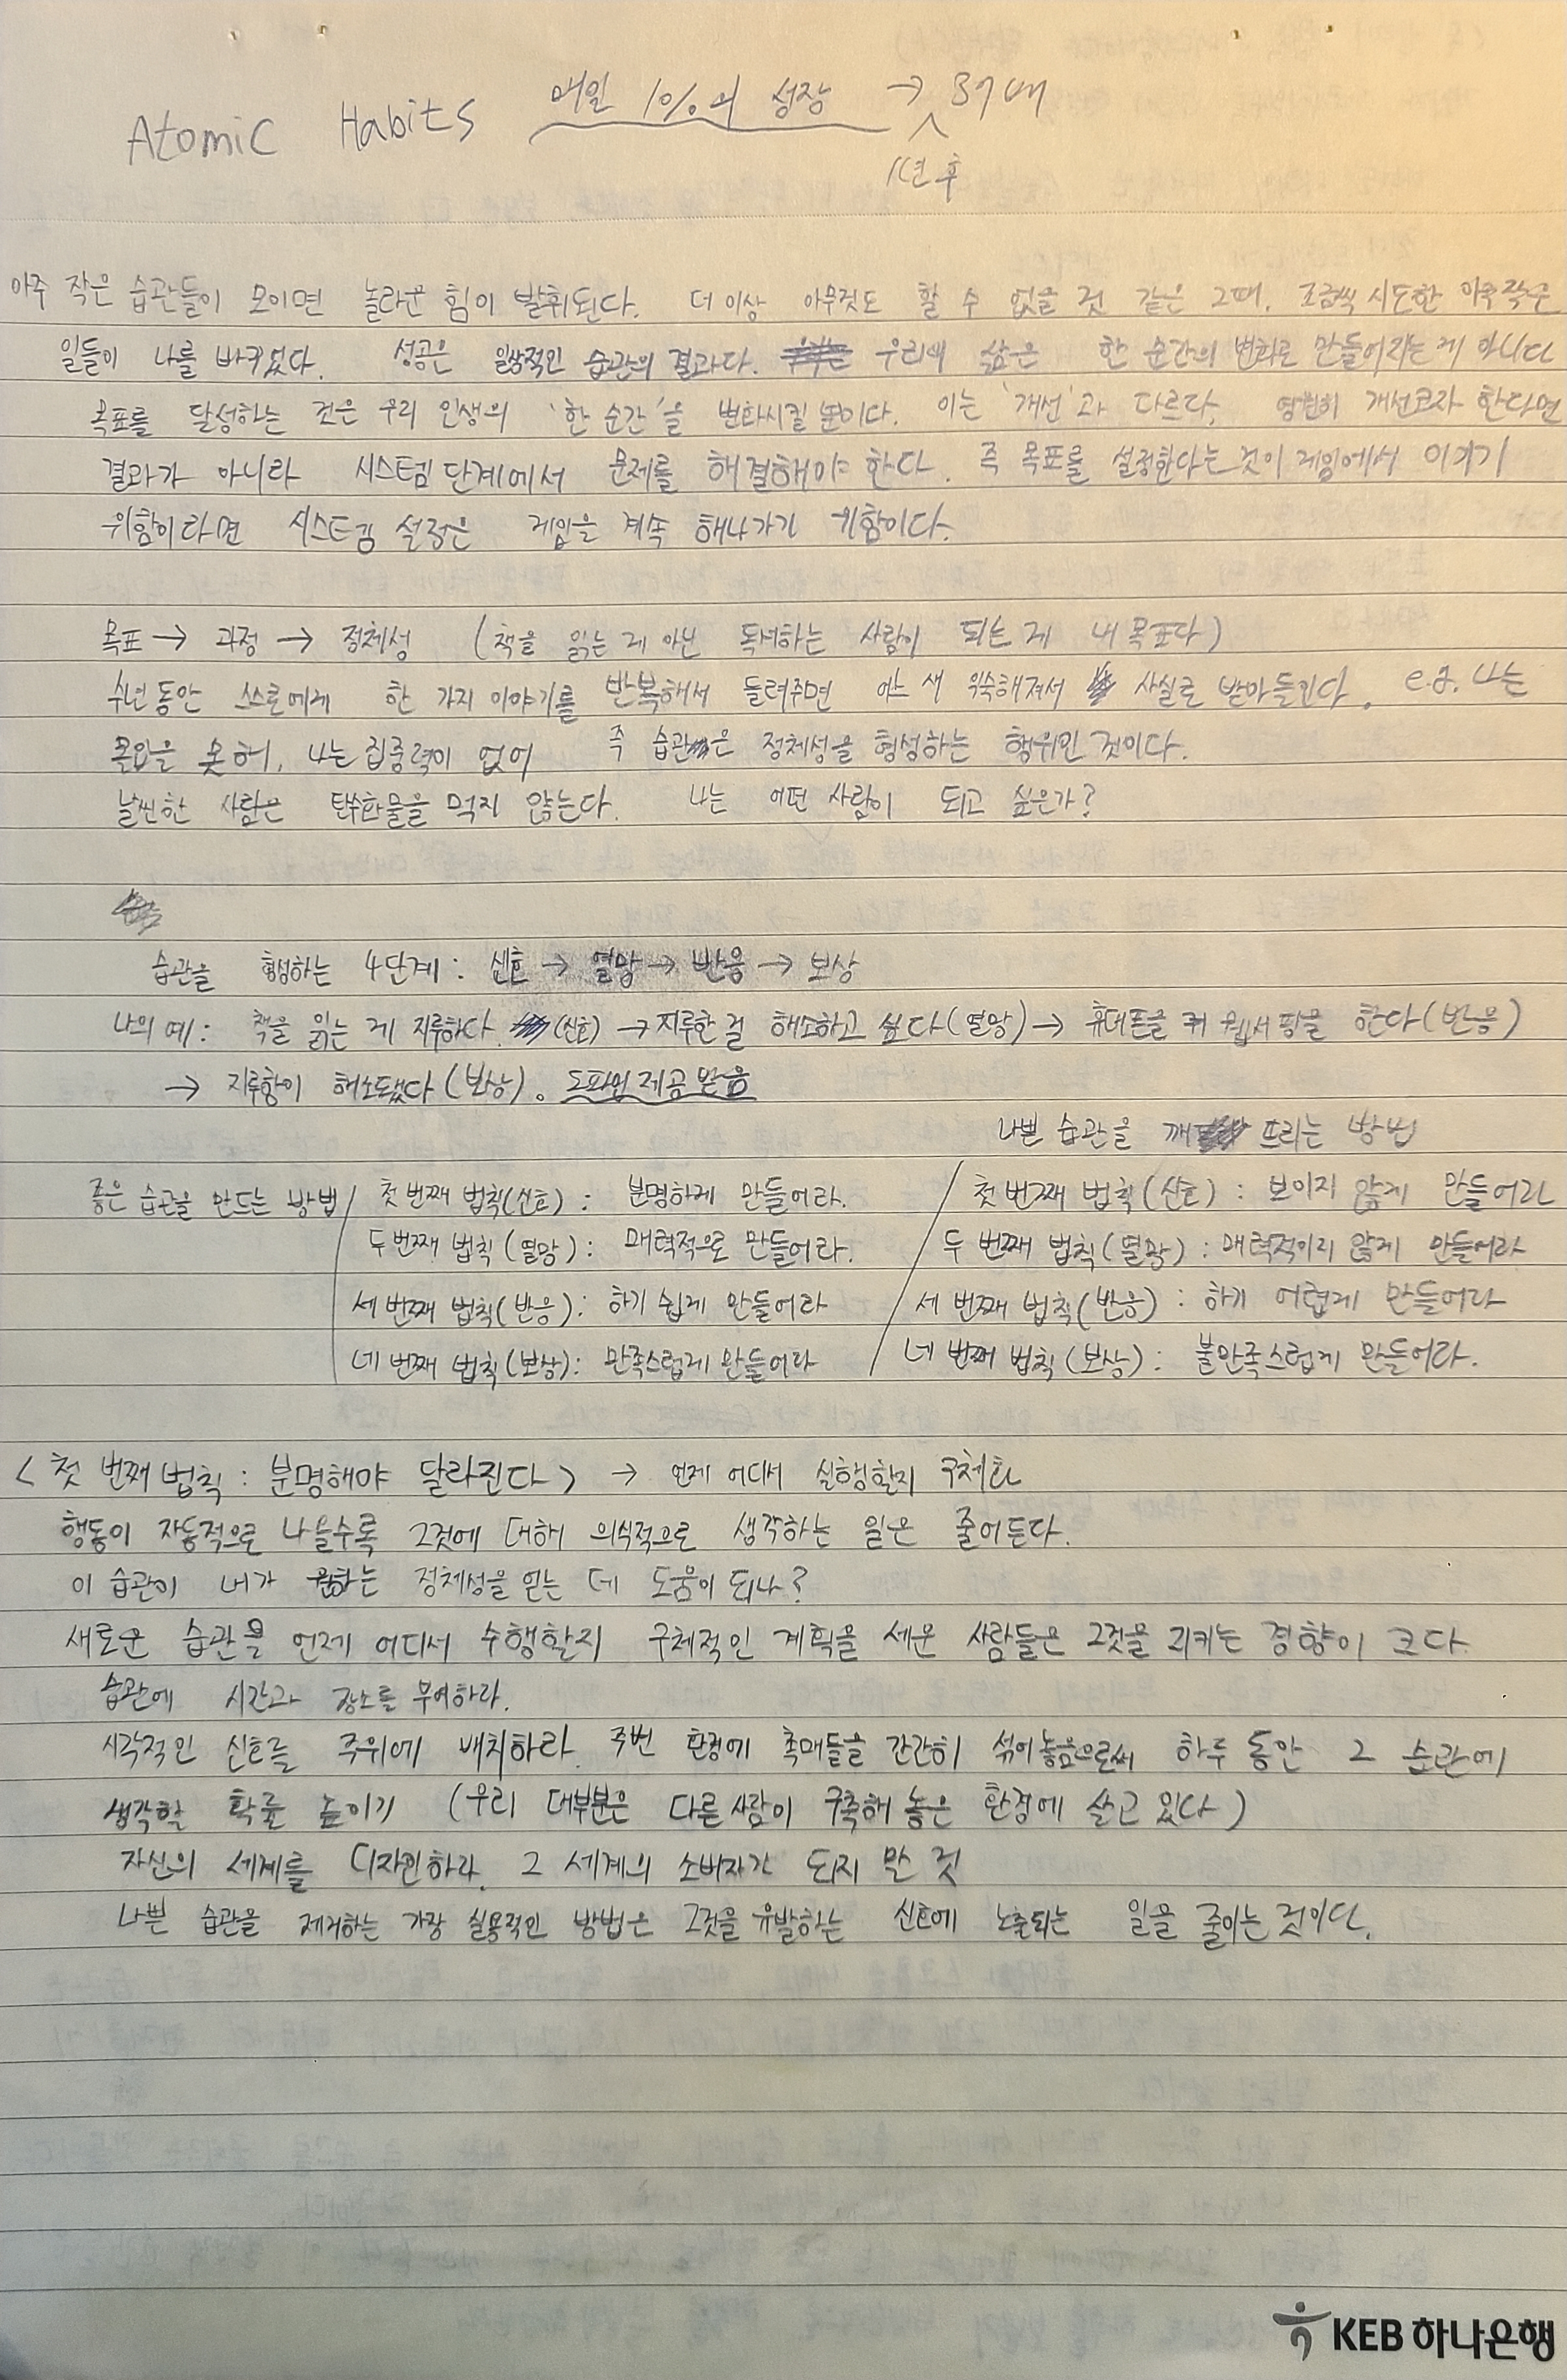 Atomic Habits 매일 1%의 성장 → 37배
1년 후
아주 작은 습관들이 모이면 놀라운 힘이 발휘된다. 더 이상 아무것도 할 수 없을 것 같은 그때, 조금씩 시도한 아주 작은
일들이 나를 바키었다. 성공은 일상적인 습관의 결과다. 우리의 삶은 한 순간의 변화로 만들어지는 게 아니다
목표를 달성하는 것은 우리 인생의 '한 순간'을 변화시킬 뿐이다. 이는 '개선'과 다르다. 영원히 개선코자 한다면
결과가 아니라 시스템 단계에서 문제를 해결해야 한다. 즉 목표를 설정한다는 것이 게임에서 이기기
위함이라면 시스템 설정은 게임을 계속 해나가기 위함이다.
목표 → 과정 → 정체성 (책을 읽는 게 아닌 독서하는 사람이 되는 게 내 목표다)
수년 동안 스스로에게 한 가지 이야기를 반복해서 들려주면 어느 새 익숙해져서 사실로 받아들인다. e.g. 나는
못해, 나는 집중력이 없어 즉 습관은 정체성을 형성하는 행위인 것이다.
날씬한 사람은 탄수화물을 먹지 않는다. 나는 어떤 사람이 되고 싶은가?
습관을 형성하는 4단계: 신호 → 열망 → 반응 → 보상
나의 예: 책을 읽는 게 지루하다 (신호) → 지루한 걸 해소하고 싶다(열망) → 휴대폰을 켜 웹서핑을 한다(반응)
→ 지루함이 해소됐다(보상). 도파민 제공 받음
나쁜 습관을 깨뜨리는 방법
좋은 습관을 만드는 방법 / 첫 번째 법칙(신호): 분명하게 만들어라. / 첫 번째 법칙(신호): 보이지 않게 만들어라
두 번째 법칙(열망): 매력적으로 만들어라. 두 번째 법칙(열망): 매력적이지 않게 만들어라
세 번째 법칙(반응): 하기 쉽게 만들어라 세 번째 법칙(반응): 하기 어렵게 만들어라
네 번째 법칙(보상): 만족스럽게 만들어라 네 번째 법칙(보상): 불만족스럽게 만들어라.
<첫 번째 법칙: 분명해야 달라진다> → 언제 어디서 실행할지 구체화
행동이 자동적으로 나올수록 그것에 대해 의식적으로 생각하는 일은 줄어든다.
이 습관이 내가 원하는 정체성을 얻는 데 도움이 되나?
새로운 습관을 언제 어디서 수행할지 구체적인 계획을 세운 사람들은 그것을 지키는 경향이 크다
습관에 시간과 장소를 부여하라.
시각적인 신호를 주위에 배치하라 주변 환경에 촉매들을 간간히 섞어놓음으로써 하루 동안 그 습관에
생각할 확률 높이기 (우리 대부분은 다른 사람이 구축해 놓은 환경에 살고 있다)
자신의 세계를 디자인하라. 그 세계의 소비자가 되지 말 것
나쁜 습관을 제거하는 가장 실용적인 방법은 그것을 유발하는 신호에 노출되는 일을 줄이는 것이다.
KEB 하나은행